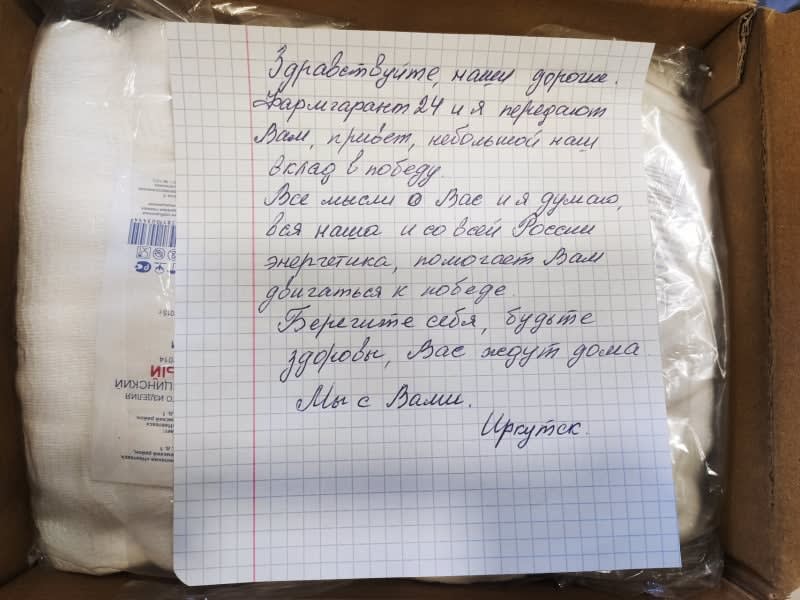 Здравствуйте, наши дорогие.
Фармгарант 24 и я передают
Вам, привет, небольшой наш
вклад в победу.
Все мысли о Вас и я думаю,
вся наша и со всей России
энергетика, помогает Вам
двигаться к победе
Берегите себя, будьте
здоровы, Вас ждут дома.
Мы с Вами.
Иркутск.